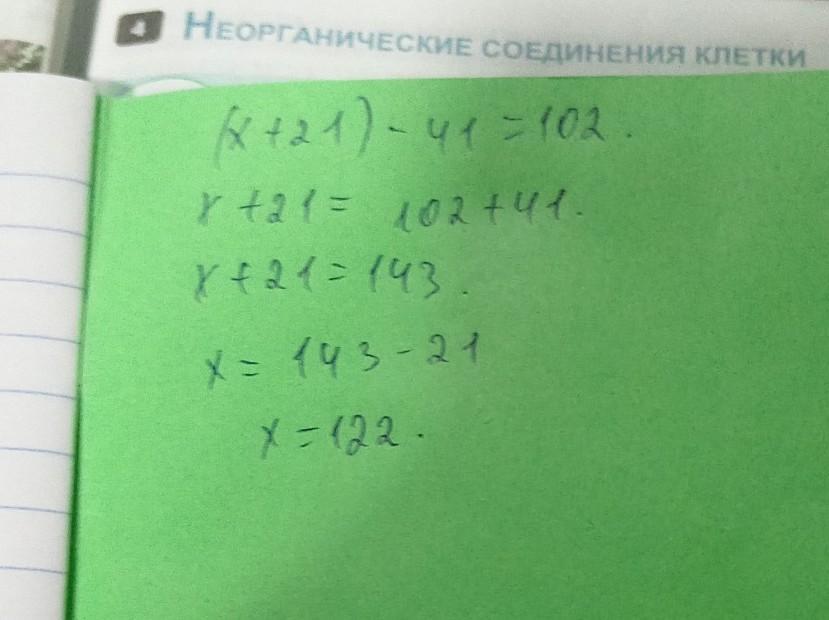 4 НЕОРГАНИЧЕСКИЕ СОЕДИНЕНИЯ КЛЕТКИ
(x+21)-41=102.
x+21= 102+41.
x+21=143.
x= 143-21
x=122.